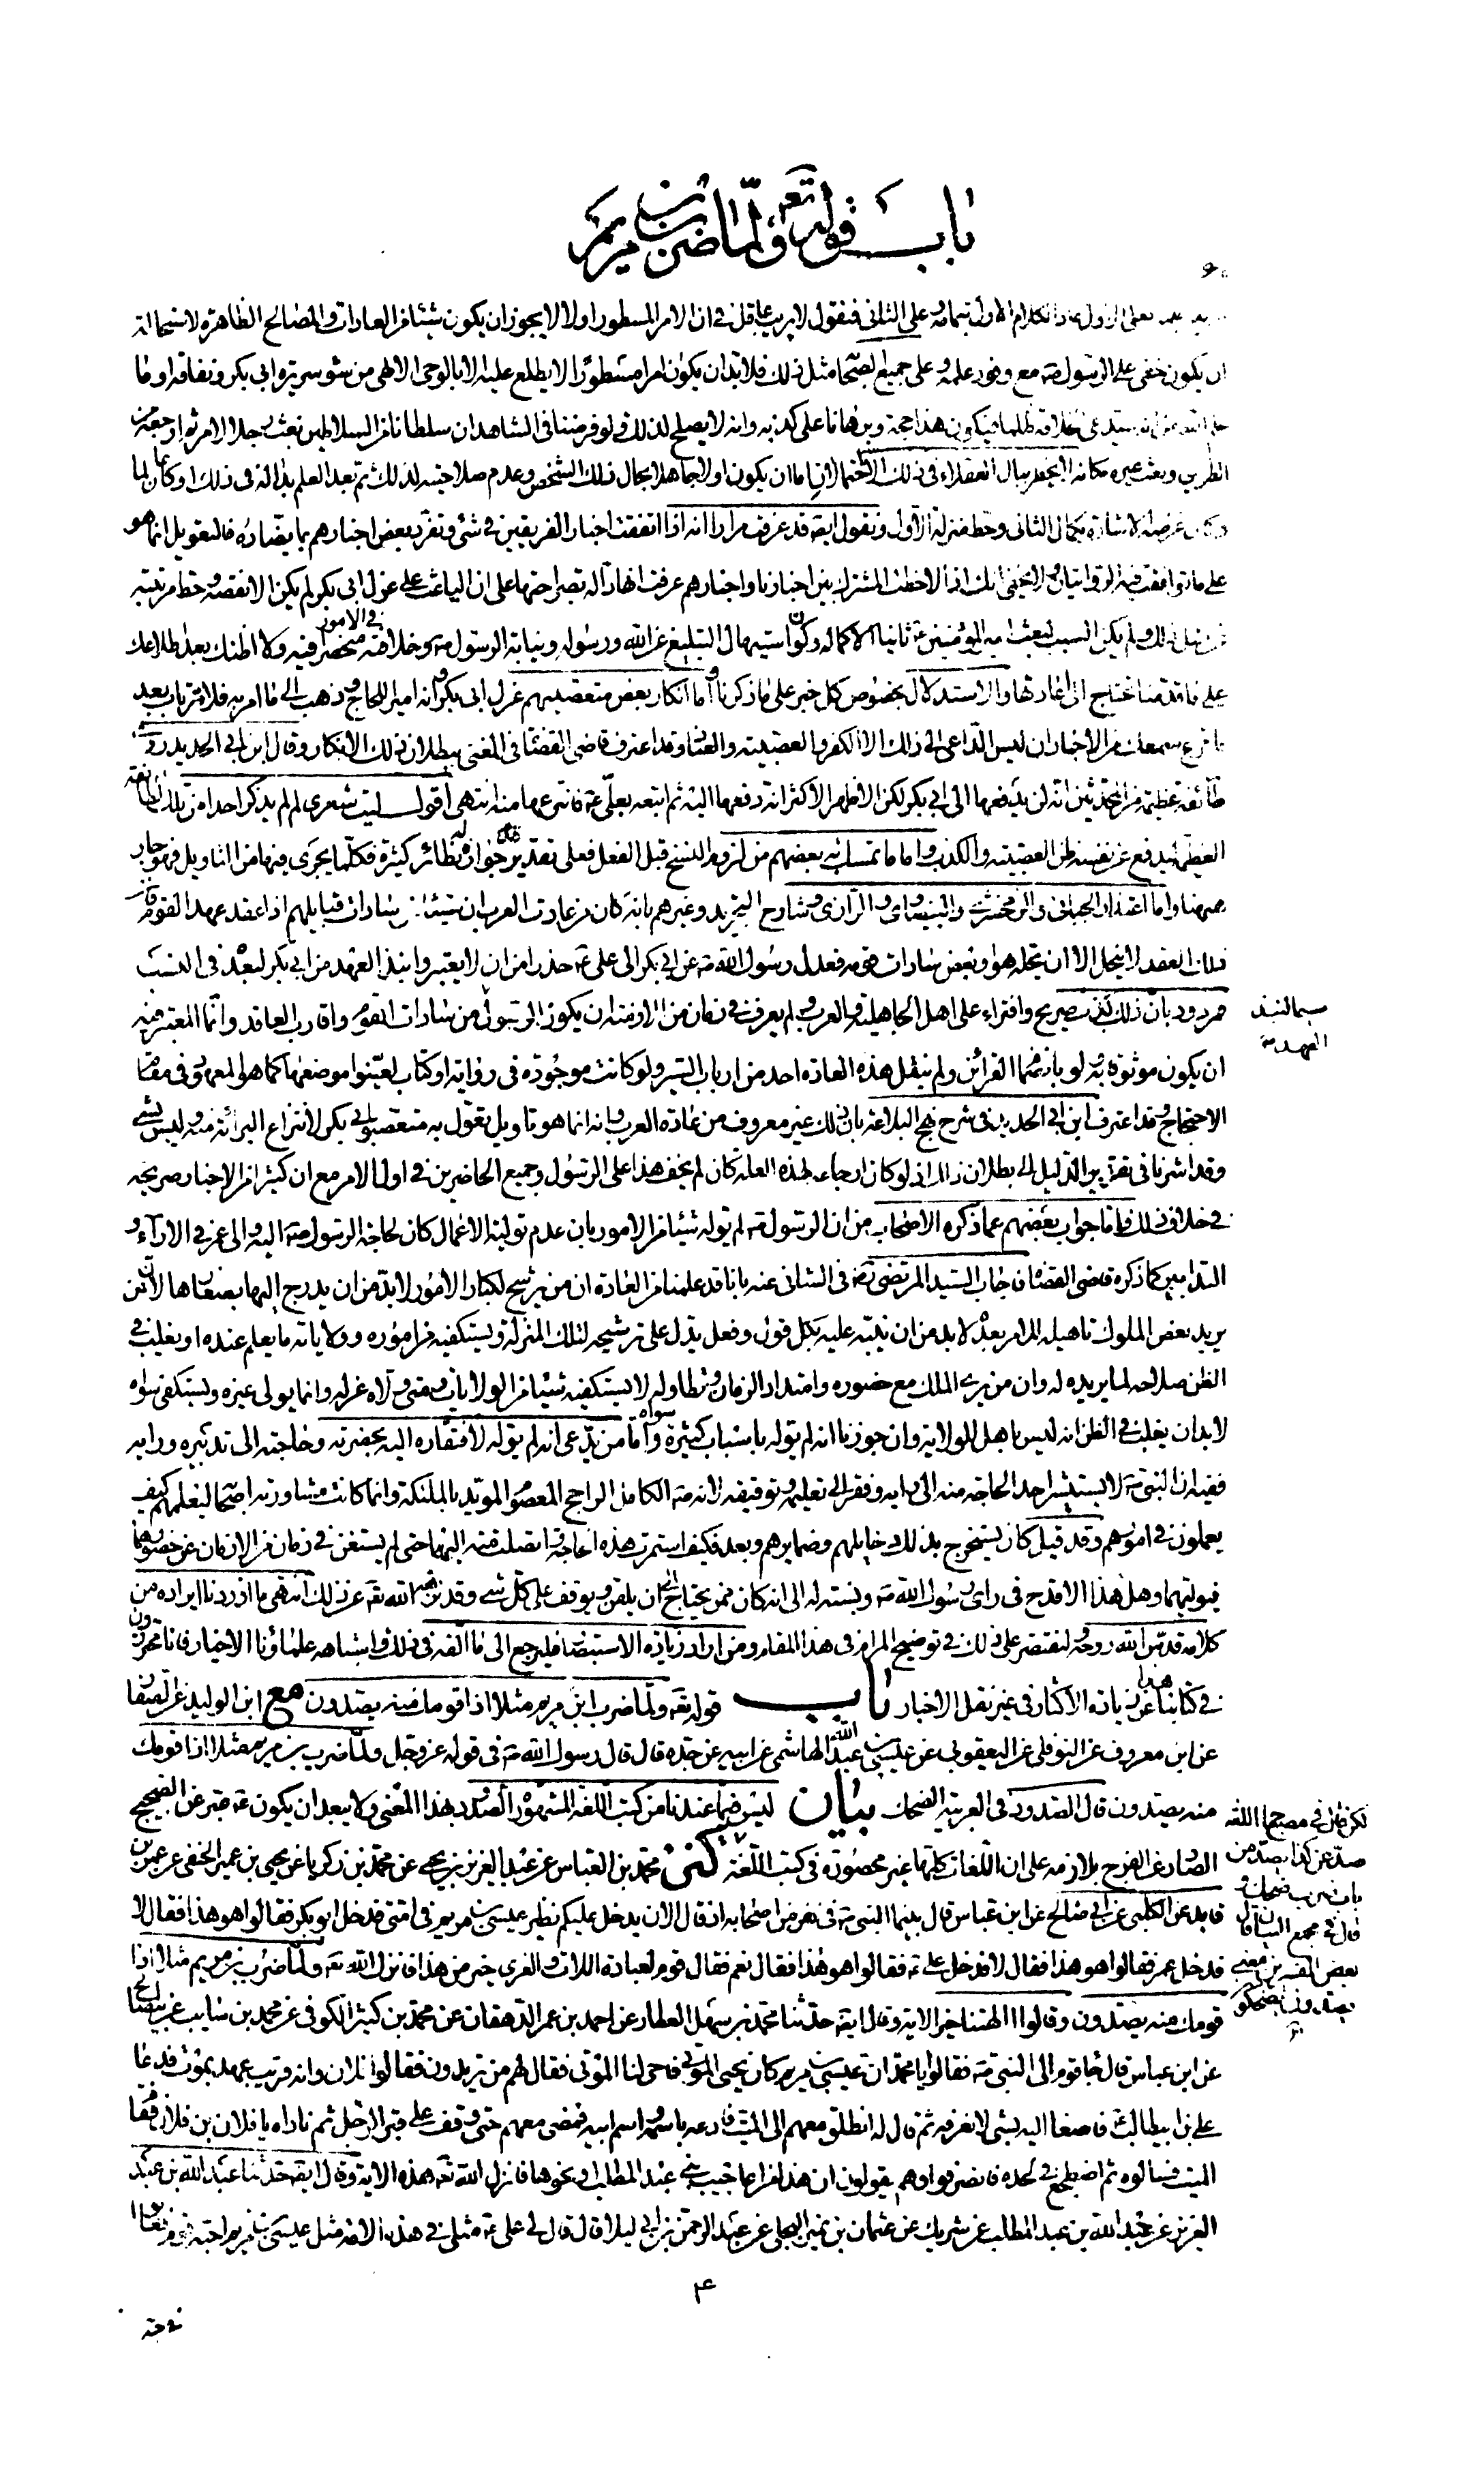 باب قوله تعه ولما ضرب ابن مريم
بعد تعلى الاول عاد الكلام الاول بتمامه وعلى الثاني فنقول لا يريب عاقل في ان الامر المسطور اولا لا يجوز ان يكون شيئا من العادات والمصالح الظاهرة لاستحالة
ان يكون خفى على الرسول صه مع وفور علمه وعلى جميع الصحابة مثل ذلك فلا بد ان يكون امرا مستورا لا يطلع عليه الا بالوحى الالهى من سوء سريرة ابى بكر ونفاقه او ما
علم الله من انه سيدعى الخلافة ظلما فيكون هذا حجة وبرهانا على كذبه وانه لا يصلح لذلك ولو فرضنا في الشاهد ان سلطانا من السلاطين بعث رجلا لامر ثم ارجعه من
الطريق وبعث غيره مكانه لا يخطر ببال العقلاء في ذلك الا احتمالان اما ان يكون اولا جاهلا بحال ذلك الشخص وعدم صلاحيته لذلك ثم بعد العلم بدا له في ذلك او كان عالما
وكان غرضه الاشارة بكمال الثاني وحط منزلة الاول ونقول ايضه قد عرفت مرارا انه اذا اتفقت اخبار الفريقين في شئ وتفرد بعض اخبارهم بما يضاده فالتعويل انما هو
على ما توافقت فيه الروايتان ولا يخفى انك اذا لاحظت المشترك بين اخبارنا واخبارهم عرفت انها دالة بصراحتها على ان الباعث على عزل ابى بكر لم يكن الا نقصه وحط مرتبته
عن مثل ذلك ولم يكن السبب لبعث امير المؤمنين عه ثانيا الا كماله وكون استيهال التبليغ عن الله ورسوله ونيابة الرسول صه وخلافته في الامور منحصرا فيه ولا اظنك بعد اطلاعك
على ما قدمنا تحتاج الى اعادتها والاستدلال بخصوص كل خبر على ما ذكرنا واما انكار بعض متعصبيهم عزل ابى بكر وانه امير الحاج وذهب الى ما امر به فلا ترتاب بعد
ما قرع سمعك من الاخبار ان ليس الداعى الى ذلك الا الكفر والعصبية والعناد وقد اعترف قاضى القضاة في المغنى ببطلان ذلك الانكار وقال ابن ابى الحديد روى
طائفة عظيمة من المحدثين انه لن يدفعها الى ابى بكر لكن الاظهر الاكثر انه دفعها اليه ثم اتبعه بعلى عه فانتزعها منه انتهى اقول ليت شعرى لم لم يذكر احدا من تلك الطائفة
العظيمة ليدفع عن نفسه ظن العصبية والكذب واما ما تمسك به بعضهم من لزوم النسخ قبل الفعل فعلى تقدير عدم جوازه له نظائر كثيرة فكلما يجرى فيها من التأويل فهو جار
ههنا واما اعتذار الجبائى والزمخشرى والبيضاوى والرازى وشارح التجريد وغيرهم بانه كان من عادة العرب ان سيدا من سادات قبايلهم اذا عقد عهدا لقوم فان
ذلك العقد لا ينحل الا ان يحله هو او بعض سادات قومه فعدل رسول الله صه عن ابى بكر الى على عه حذرا من ان لا يعتبروا نبذ العهد من ابى بكر لبعده في النسب
فمردود بان ذلك كذب صريح وافتراء على اهل الجاهلية والعرب ولم يعرف في زمان من الازمنة ان يكون الرسول من سادات القوم واقارب العاقد وانما المعتبر فيه
سيما لنبذ العهد صه
ان يكون موثوقا به ولو بانضمام القرائن ولم ينقل هذه العادة احد من ارباب السير ولو كانت موجودة في رواية او كتاب لعينوا موضعها كما هو المعهود في مقام
الاحتجاج وقد اعترف ابن ابى الحديد في شرح نهج البلاغة بان ذلك غير معروف من عادة العرب وبانه انما هو تاويل تقول به متعصبوا ابى بكر لانتزاع البرائة منه وليس بشئ
وقد اشرنا في تقرير الدليل الى بطلان ذلك اذ لو كان ارجاعه لهذه العلة كان لم يخف هذا على الرسول وجميع الحاضرين في اول الامر مع ان كثيرا من الاخبار صريحة
في خلاف ذلك واما جواب بعضهم عما ذكره الاصحاب من ان الرسول صه لم يوله شيئا من الامور بان عدم توليته الاعمال كان لحاجة الرسول صه اليه والى عمر في الاراء و
التدابير كما ذكره قاضى القضاة فاجاب السيد المرتضى رضه في الشافى عنه بانا قد علمنا من العادة ان من يرشح لكبار الامور لا بد من ان يدرج اليها بصغارها لان من
يريد بعض الملوك تاهيله للامر بعده لا بد من ان ينبه عليه بكل قول وفعل يدل على ترشيحه لتلك المنزلة ويستكفيه من اموره وولاياته ما يعلم عنده او يغلب في
الظن صلاحه لما يريده له وان من يرى الملك مع حضوره وامتداد الزمان وتطاوله لا يستكفيه شيئا من الولايات ومتى ولاه عزله وانما يولى غيره ويستكفى سواه
لا بد ان يغلب في الظن انه ليس باهل للولاية وان جوزنا انه لم يوله باسباب كثيرة سواه واما من يدعى انه لم يوله لافتقاره اليه بحضرته وحاجته الى تدبيره ورايه
ففيه ان النبى صه لا يستشير احدا لحاجة منه الى رايه وفقر الى تعليمه وتوقيفه لانه صه الكامل الراجح المعصوم المؤيد بالملئكة وانما كانت مشاورته اصحابه ليعلمهم كيف
يعملون في امورهم وقد قيل كان يستخرج بذلك دخايلهم وضمايرهم وبعد فكيف استمرت هذه الحاجة واتصلت منه اليهما حتى لم يستغن في زمان من الازمان عن حضورهما
فيوليهما وهل هذا الا قدح في راى رسول الله صه ونسبته له الى انه كان ممن يحتاج الى ان يلقن ويوقف على كل شئ وقد نزهه الله تعه عن ذلك انتهى ما اوردنا ايراده من
كلامه قدس الله روحه ولنقتصر على ذلك في توضيح المرام في هذا المقام ومن اراد زيادة الاستبصار فليرجع الى ما الفه في ذلك واشباهه علماؤنا الاخيار فانا محترزون
في كتابنا هذا عن زيادة الاكثار في غير نقل الاخبار باب قوله تعه ولما ضرب ابن مريم مثلا اذا قومك منه يصدون مع ابن الوليد عن الصفار
عن ابن معروف عن النوفلى عن اليعقوبى عن عيسى بن عبد الله الهاشمى عن ابيه عن جده قال قال رسول الله صه في قوله عز وجل ولما ضرب بن مريم مثلا اذا قومك
منه يصدون قال الصدود في العربية الضحك بيان ليس فيما عندنا من كتب اللغة المشهورة الصدود بهذا المعنى ولا يبعد ان يكون عه عبر عن الضجيج
الصادر عن الفرح بلازمه على ان اللغات كلها غير محصورة في كتب اللغة كنز محمد بن العباس عن عبد العزيز بن يحيى عن محمد بن زكريا عن يحيى بن عمير الحنفى عن عمر بن
قايد عن الكلبى عن ابى صالح عن ابن عباس قال بينما النبى صه في نفر من اصحابه اذ قال الان يدخل عليكم نظير عيسى بن مريم في امتى فدخل ابو بكر فقالوا هو هذا فقال لا
فدخل عمر فقالوا هو هذا فقال لا فدخل على عه فقالوا هو هذا فقال نعم فقال قوم لعبادة اللات والعزى خير من هذا فانزل الله تعه ولما ضرب بن مريم مثلا اذا
قومك منه يصدون وقالوا االهتنا خير الاية وقال ايضه حدثنا محمد بن سهل العطار عن احمد بن عمر الدهقان عن محمد بن كثير الكوفى عن محمد بن سايب عن ابى صالح
لكن قال في مصباح اللغة
صد عن كذا يصد من
باب ضرب ضحك و
قال في مجمع البيان قال
بعض المفسرين معنى
يصدون يضحكون
عن ابن عباس قال جاء قوم الى النبى صه فقالوا يا محمد ان عيسى بن مريم كان يحيى الموتى فاحى لنا الموتى فقال لهم من تريدون فقالوا فلان وانه قريب عهد بموت فدعا
على بن ابيطالب عه فاصغا اليه بشئ لا نعرفه ثم قال له انطلق معهم الى الميت فادعه باسمه واسم ابيه فمضى معهم حتى وقف على قبر الرجل ثم ناداه يا فلان بن فلان فقام
الميت فسالوه ثم اضطجع في لحده فانصرفوا وهم يقولون ان هذا من اعاجيب بنى عبد المطلب او نحوها فانزل الله تعه هذه الاية وقال ايضه حدثنا عبد الله بن عبد
العزيز عن عبد الله بن عبد المطلب عن شريك عن عثمان بن نمير البجلى عن عبد الرحمن بن ابى ليلا قال قال لى على عه مثلى في هذه الامة مثل عيسى بن مريم احبه قوم فغالوا
۴
في حبه